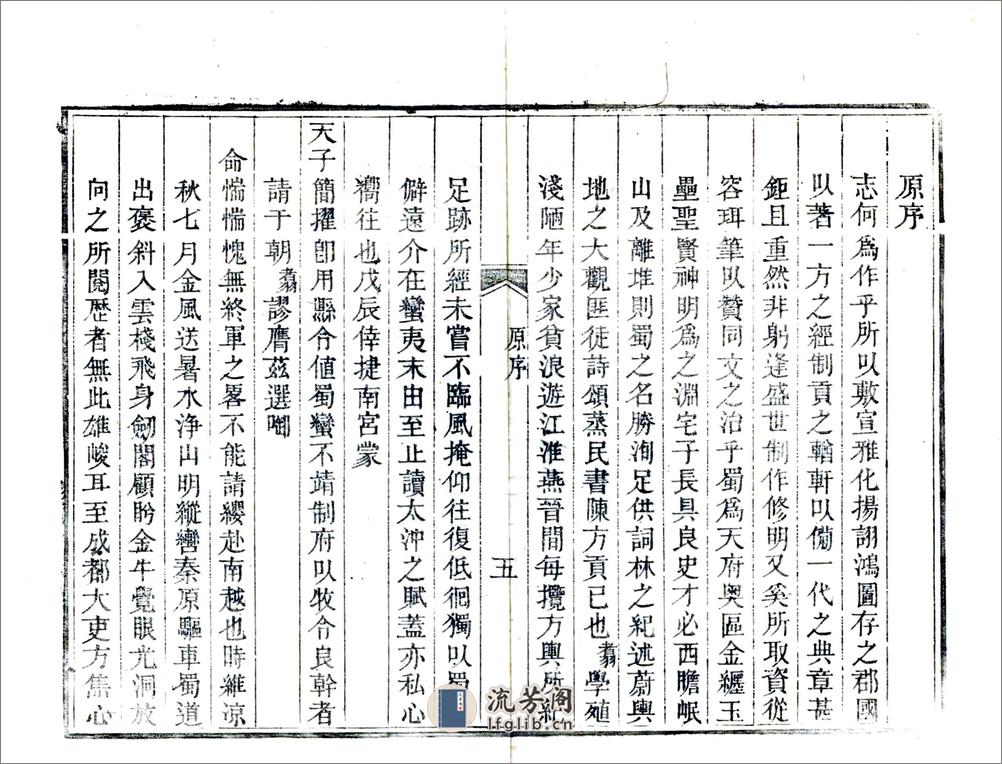 原序
志何爲作乎所以敷宣雅化揚詡鴻圖存之郡國
以著一方之經制貢之輶軒以偹一代之典章甚
鉅且重然非躬逢盛世制作修明又奚所取資從
容珥筆以贊同文之治乎蜀爲天府奥區金繩玉
壘聖賢神明爲之淵宅子長具良史才必西瞻岷
山及離堆則蜀之名勝洵足供詞林之紀述蔚輿
地之大觀匪徒詩頌蒸民書陳方貢已也翥學殖
淺陋年少家貧浪遊江淮燕晉間每攬方輿所紀
原序
五
足跡所經未嘗不臨風掩仰往復低徊獨以蜀
僻遠介在蠻夷末由至止讀太沖之賦蓋亦私心
嚮往也戊辰倖捷南宮蒙
天子簡擢卽用縣令值蜀蠻不靖制府以牧令良幹者
請于朝翥謬膺茲選啣
命惴惴愧無終軍之畧不能請纓赴南越也時維涼
秋七月金風送暑水浄山明縱轡秦原驅車蜀道
出褒斜入雲棧飛身劒閣顧盻金牛覺眼光洞放
向之所閱歷者無此雄峻耳至成都大吏方焦心
流芳阁
lfglib.cn